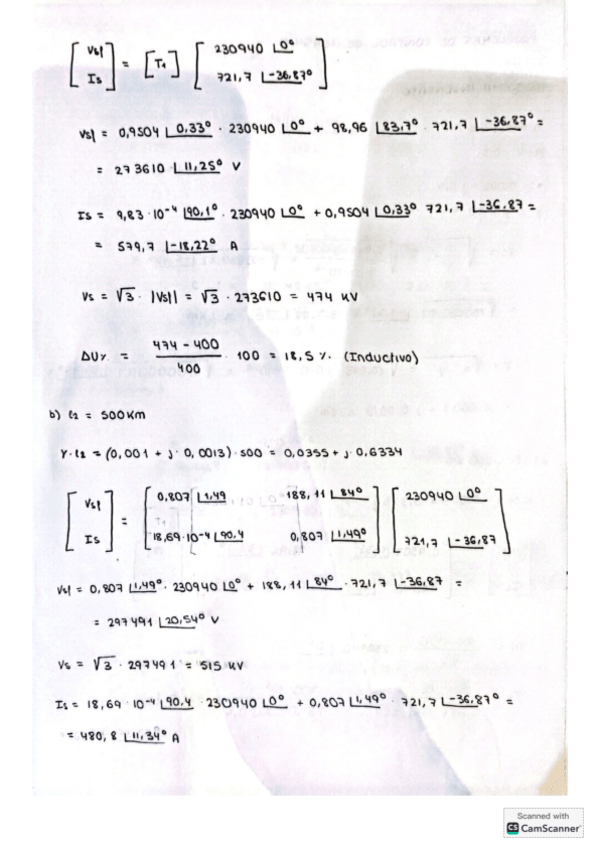 [ Vsf Is ] = [T₁] [ 230940 ∟0° 721,7 ∟-36,87° ]
Vsf = 0,9504 ∟0,33° · 230940 ∟0° + 98,96 ∟83,7° · 721,7 ∟-36,87° =
= 273610 ∟11,25° V
Is = 9,83·10⁻⁴ ∟90,1° · 230940 ∟0° + 0,9504 ∟0,33° 721,7 ∟-36,87 =
= 579,7 ∟-18,22° A
Vs = √3 · |Vsf| = √3 · 273610 = 474 kV
ΔU% = (474 - 400)/400 · 100 = 18,5 %. (Inductivo)
b) l2 = 500 Km
γ·l2 = (0,001 + j· 0,0013)·500 = 0,0355 + j·0,6334
[ Vsf Is ] = [ 0,807 ∟1,49 188,11 ∟84° 18,69·10⁻⁴ ∟90,4 0,807 ∟1,49° ] [ 230940 ∟0° 721,7 ∟-36,87 ]
Vsf = 0,807 ∟1,49° · 230940 ∟0° + 188,11 ∟84° · 721,7 ∟-36,87 =
= 297491 ∟20,54° V
Vs = √3 · 297491 = 515 kV
Is = 18,69 · 10⁻⁴ ∟90,4 · 230940 ∟0° + 0,807 ∟1,49° · 721,7 ∟-36,87° =
= 480,8 ∟11,34° A
Scanned with
CS CamScanner